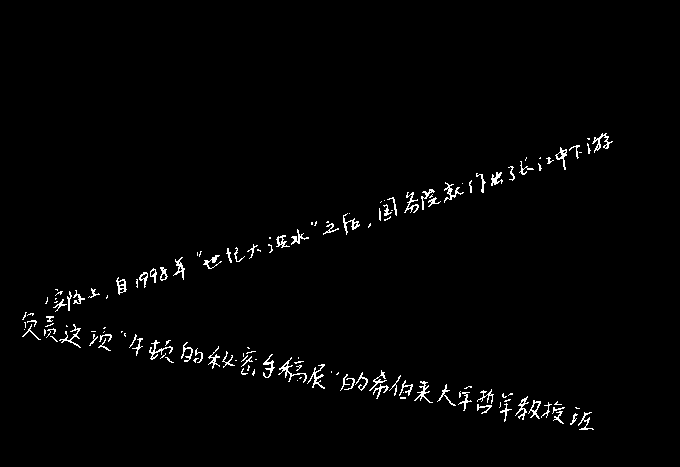 实际上，自1998年“世纪大洪水”之后，国务院就作出了长江中下游
负责这项“牛顿的秘密手稿展”的希伯来大学哲学教授班